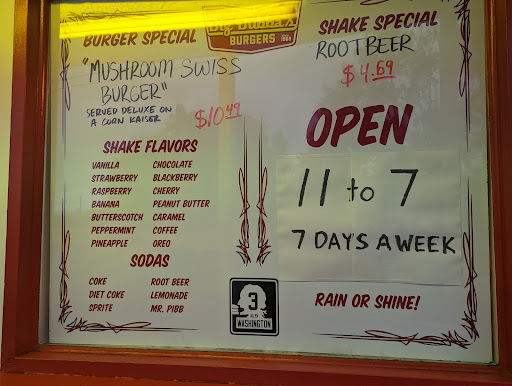 BURGER SPECIAL
"MUSHROOM SWISS
BURGER"
SERVED DELUXE ON
A CORN KAISER
$10.49
BURGERS
SHAKE SPECIAL
ROOTBEER
$4.69
SHAKE FLAVORS
VANILLA CHOCOLATE
STRAWBERRY BLACKBERRY
RASPBERRY CHERRY
BANANA PEANUT BUTTER
BUTTERSCOTCH CARAMEL
PEPPERMINT COFFEE
PINEAPPLE OREO
SODAS
COKE ROOT BEER
DIET COKE LEMONADE
SPRITE MR. PIBB
OPEN
11 to 7
7 DAYS A WEEK
RAIN OR SHINE!
3
WASHINGTON